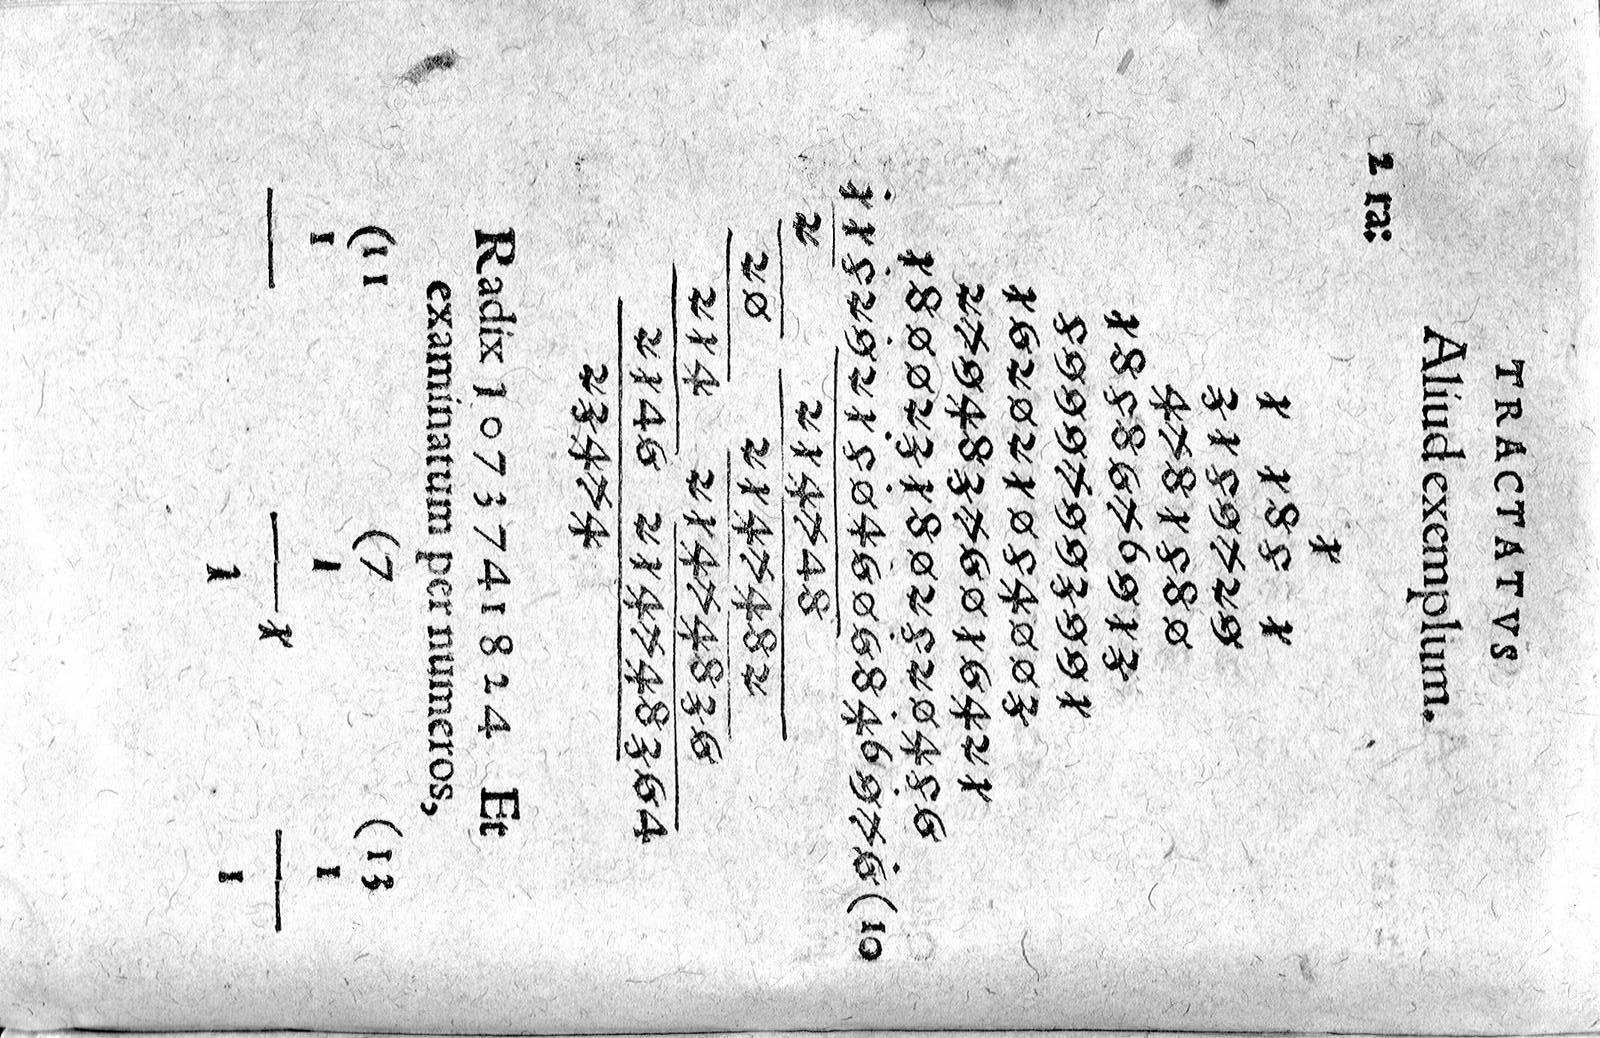 TRACTATVS
Aliud exemplum.
2 ra:
1
1 185 1
3159729
4781580
18558676913
599979993991
1620210540003
27948376016421
1800231802520456
1152921504606846976(10
2 214748
20 2147482
214 21474836
2146 214748364
23474
Radix 1073741824 Et
examinatum per numeros,
(11 (7 (13
1 1 1
1
1 1